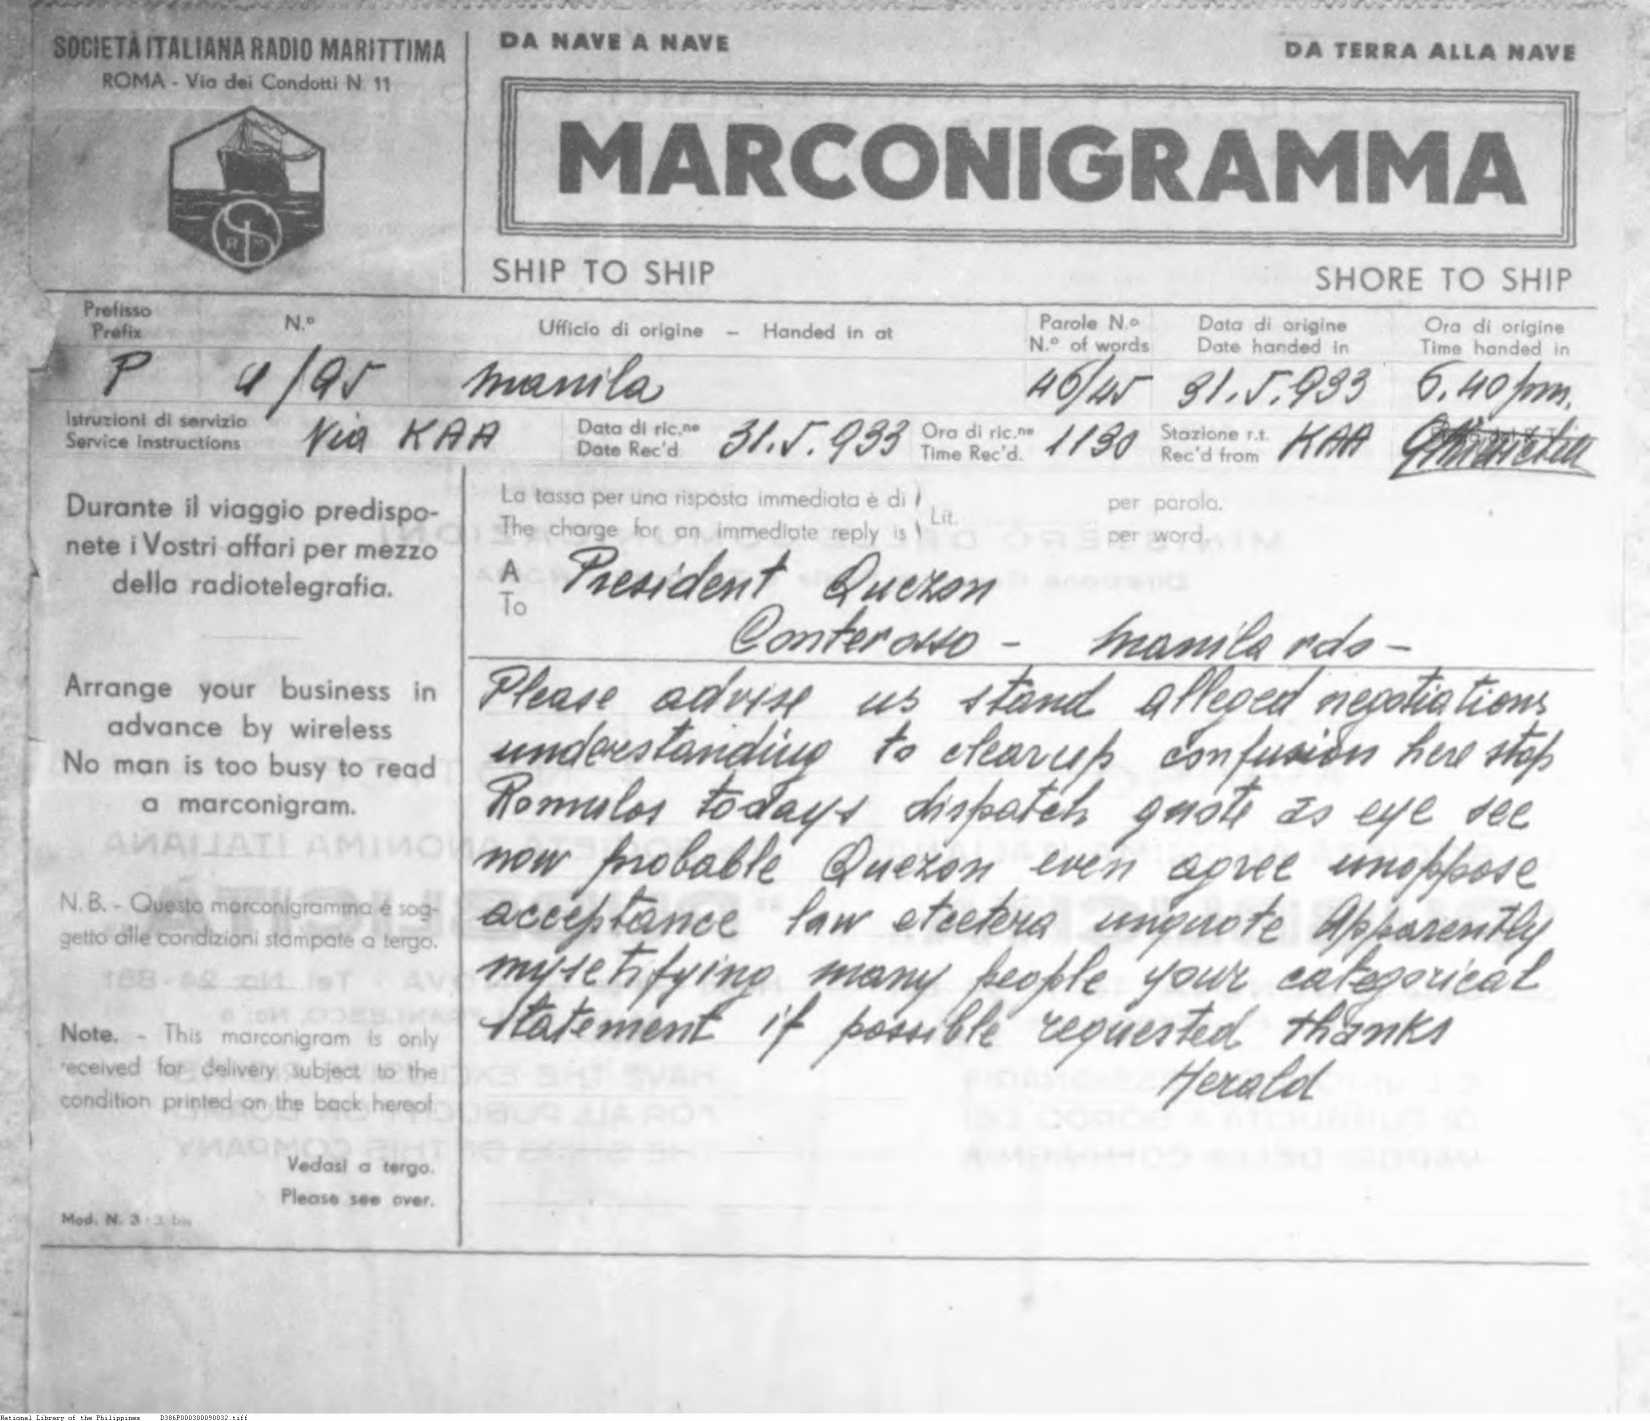 SOCIETÀ ITALIANA RADIO MARITTIMA
ROMA - Via dei Condotti N. 11
R M
DA NAVE A NAVE
DA TERRA ALLA NAVE
MARCONIGRAMMA
SHIP TO SHIP
SHORE TO SHIP
Prefisso
Prefix
N.º
Ufficio di origine – Handed in at
Parole N.º
N.º of words
Data di origine
Date handed in
Ora di origine
Time handed in
P
4/95
Manila
46/45
31.5.933
6.40 pm.
Istruzioni di servizio
Service instructions
Via KAA
Data di ric.ne
Date Rec'd
31.5.933
Ora di ric.ne
Time Rec'd.
1130
Stazione r.t.
Rec'd from
KAA
La tassa per una risposta immediata è di
The charge for an immediate reply is
Lit.
per parola.
per word.
A
To
President Quezon
Conterosso - Manila rdo -
Please advise us stand alleged negotiations
understanding to clearup confusion here stop
Romulos todays dispatch quote as eye see
now probable Quezon even agree unoppose
acceptance law etcetera unquote Apparently
mysetifying many people your categorical
statement if possible requested thanks
Herald
Durante il viaggio predispo-
nete i Vostri affari per mezzo
della radiotelegrafia.
Arrange your business in
advance by wireless
No man is too busy to read
a marconigram.
N. B. - Questo marconigramma è sog-
getto alle condizioni stampate a tergo.
Note. - This marconigram is only
received for delivery subject to the
condition printed on the back hereof
Vedasi a tergo.
Please see over.
Mod. N. 3 - 3 bis
National Library of the Philippines D386P000300090032.tiff